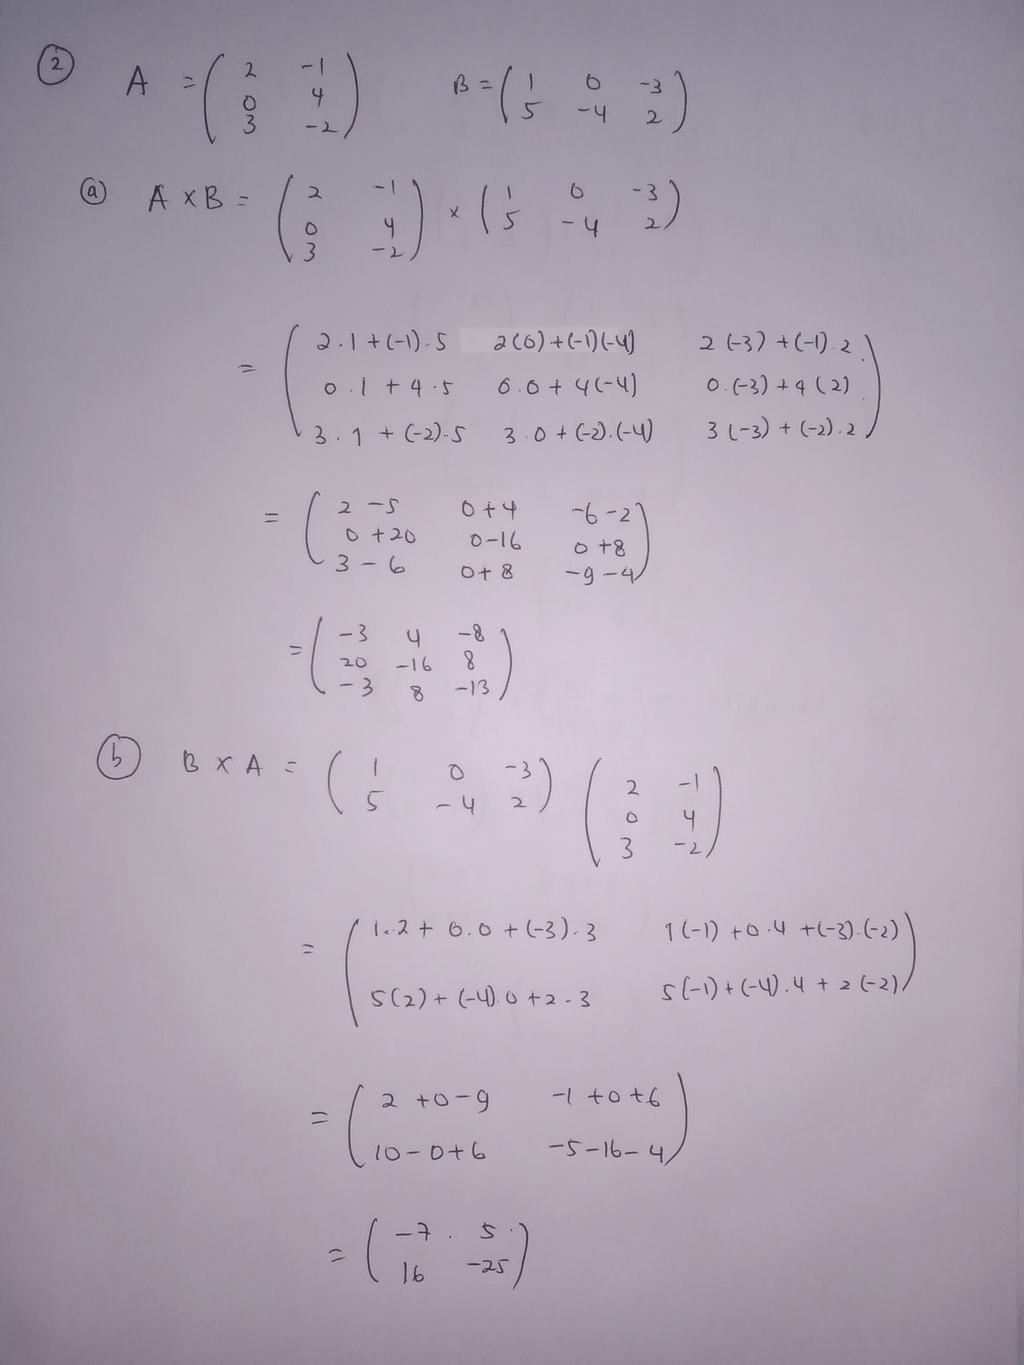 ②
A = ( 2 -1
0 4
3 -2 ) B = ( 1 0 -3
5 -4 2 )
ⓐ A × B = ( 2 -1
0 4
3 -2 ) × ( 1 0 -3
5 -4 2 )
= ( 2.1 + (-1).5 2(0) + (-1)(-4) 2(-3) + (-1).2
0.1 + 4.5 0.0 + 4(-4) 0.(-3) + 4(2)
3.1 + (-2).5 3.0 + (-2).(-4) 3(-3) + (-2).2 )
= ( 2 - 5 0 + 4 -6 - 2
0 + 20 0 - 16 0 + 8
3 - 6 0 + 8 -9 - 4 )
= ( -3 4 -8
20 -16 8
-3 8 -13 )
ⓑ B × A = ( 1 0 -3
5 -4 2 ) ( 2 -1
0 4
3 -2 )
= ( 1.2 + 0.0 + (-3).3 1(-1) + 0.4 + (-3).(-2)
5(2) + (-4).0 + 2.3 5(-1) + (-4).4 + 2(-2) )
= ( 2 + 0 - 9 -1 + 0 + 6
10 - 0 + 6 -5 - 16 - 4 )
= ( -7 5
16 -25 )